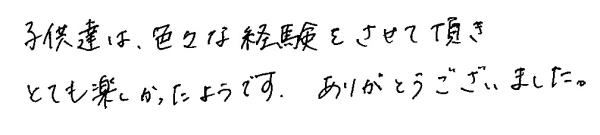 子供達は、色々な経験をさせて頂き
とても楽しかったようです. ありがとうございました。